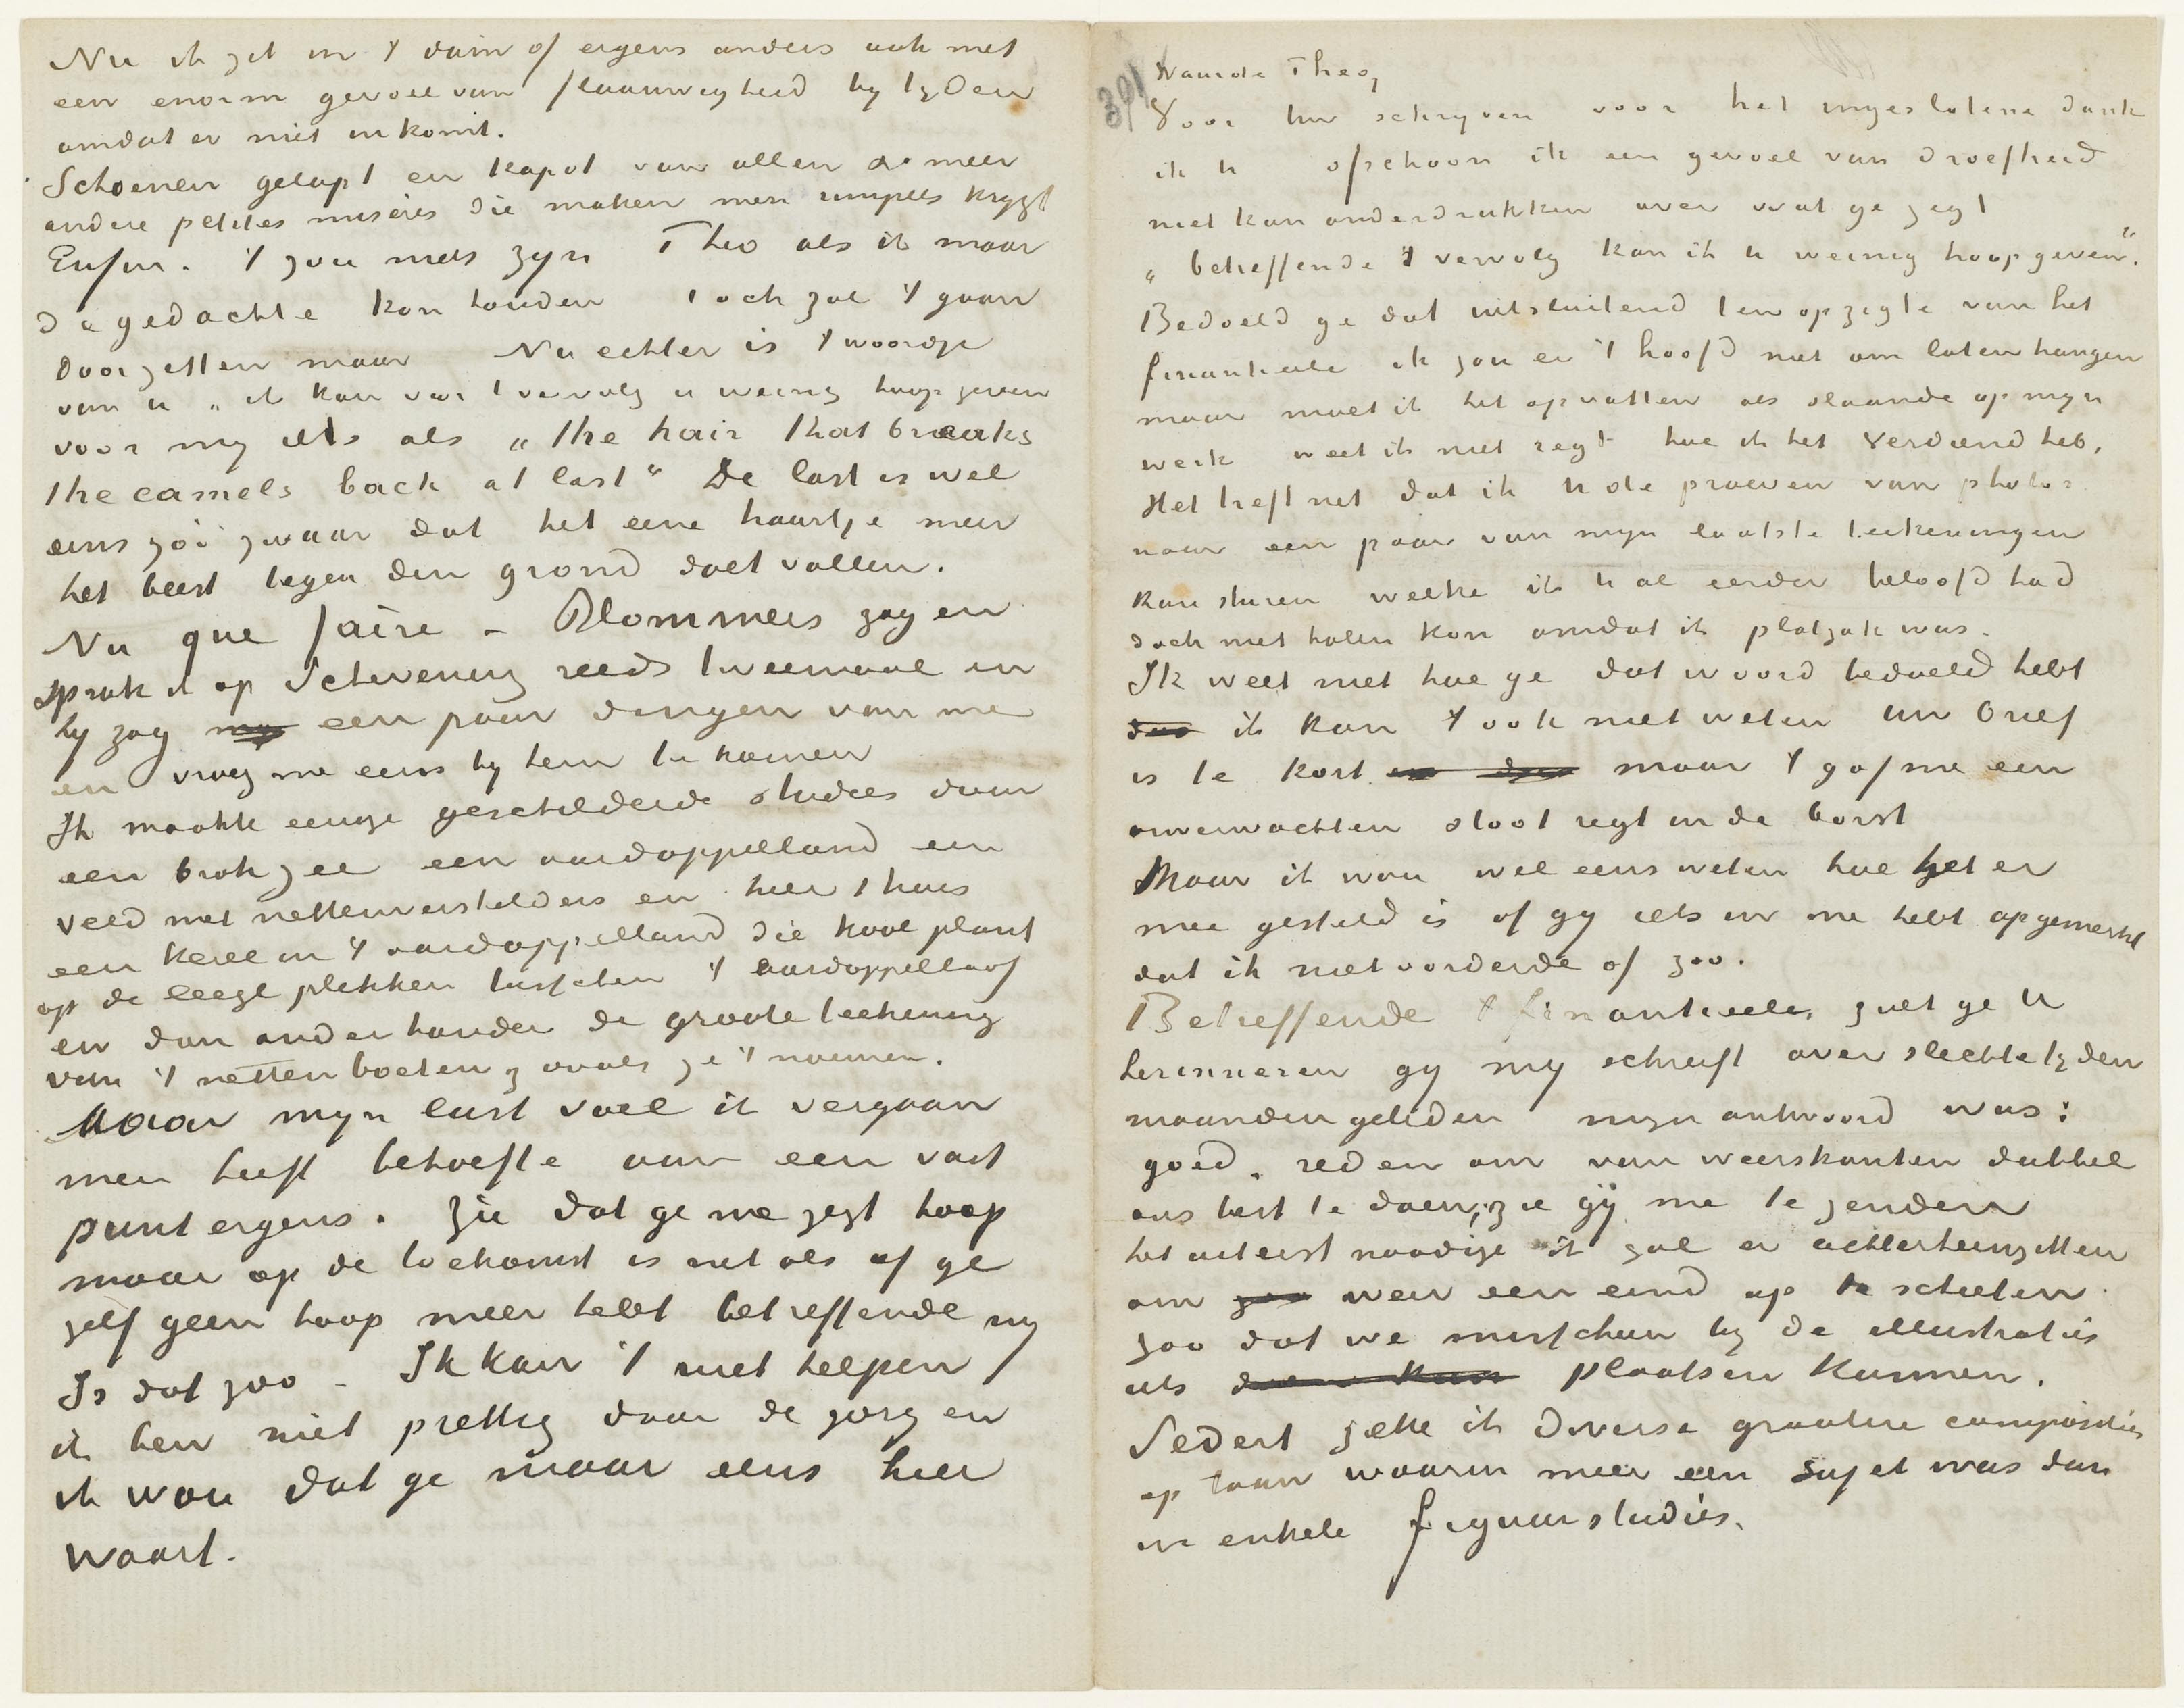 Nu ik zit in 't duin of ergens anders vaak met
een enorm gevoel van flaauwigheid bij tijden
omdat er niet in komt.
Schoenen gelapt en kapot van allen &c meer
andere petites misères die maken men rimpels krijgt
Enfin. 't zou niets zijn Theo als ik maar
de gedachte kon houden toch zal 't gaan
doorzetten maar Nu echter is 't woordje
van u „ik kan voor 't vervolg u weinig hoop geven
voor mij iets als „the hair that breaks
the camels back at last" De last is wel
eens zóó zwaar dat het eene haartje meer
het beest tegen den grond doet vallen.
Nu que faire – Blommers zag en
sprak ik op Schevening reeds tweemaal en
hij zag een paar dingen van me
en vroeg me eens bij hem te komen
Ik maakte eenige geschilderde studies daar
een brok zee een aardappelland een
veld met nettenverstelders en hier t'huis
een kerel in 't aardappelland die kool plant
op de leege plekken tusschen 't aardappelloof
en dan onderhanden de groote teekening
van 't netten boeten zooals ze 't noemen.
Maar mijn lust voel ik vergaan
men heeft behoefte aan een vast
punt ergens. Zie dat ge me zegt hoop
maar op de toekomst is net als of ge
zelf geen hoop meer hebt betreffende mij
Is dat zoo – Ik kan 't niet helpen
ik ben niet prettig door de zorg en
ik wou dat ge maar eens hier
waart.
391
Waarde Theo,
Voor uw schrijven voor het ingeslotene dank
ik u ofschoon ik een gevoel van droefheid
niet kan onderdrukken over wat ge zegt
„betreffende 't vervolg kan ik u weinig hoop geven".
Bedoeld ge dat uitsluitend ten opzigte van het
finantieele ik zou er 't hoofd niet om laten hangen
maar moet ik het opvatten als slaande op mijn
werk weet ik niet regt hoe ik het verdiend heb,
Het treft net dat ik u de proeven van photos
naar een paar van mijn laatste teekeningen
kan sturen welke ik u al eerder beloofd had
doch niet halen kon omdat ik platzak was.
Ik weet niet hoe ge dat woord bedoeld hebt
ik kan 't ook niet weten uw brief
is te kort maar 't gaf me een
onverwachten stoot regt in de borst
Maar ik wou wel eens weten hoe het er
mee gesteld is of gij iets in me hebt opgemerkt
dat ik niet vorderde of zoo.
Betreffende 't finantieele, zult ge U
herinneren gij mij schreeft over slechte tijden
maanden geleden mijn antwoord was:
goed, reden om van weerskanten dubbel
ons best te doen; zie gij me te zenden
het uiterst noodige ik zal er achterheenzitten
om weer een eind op te schieten
zoo dat we misschien bij de illustraties
iets plaatsen kunnen.
Sedert zette ik diverse grootere composities
op touw waarin meer een sujet was dan
in enkele figuurstudies.